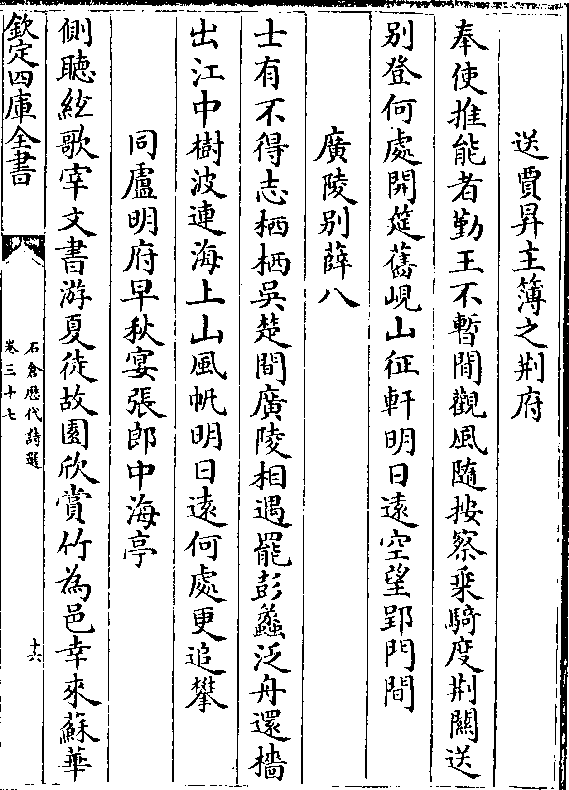 送賈昇主簿之荆府
奉使推能者勤王不暫閒觀風隨按察乗騎度荆關送
别登何處開筵舊峴山征軒明日逺空望郢門間
廣陵别薛八
士有不得志栖栖吳楚間廣陵相遇罷彭蠡泛舟還檣
出江中樹波連海上山風帆明日逺何處更追攀
同盧明府早秋宴張郎中海亭
側聽絃歌宰文書游夏徒故園欣賞竹為邑幸來蘇華
欽定四庫全書
石倉歴代詩選
卷三十七
十六